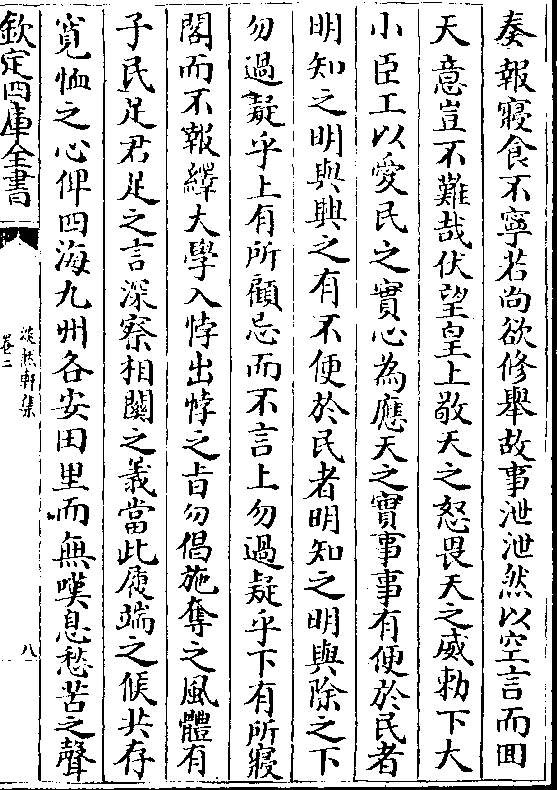 奏報寢食不寧若尚欲修舉故事泄泄然以空言而囬
天意豈不難哉伏望皇上敬天之怒畏天之威勅下大
小臣工以愛民之實心為應天之實事事有便於民者
明知之明與興之有不便於民者明知之明與除之下
勿過疑乎上有所顧忌而不言上勿過疑乎下有所寢
閣而不報繹大學入悖出悖之旨勿倡施奪之風體有
子民足君足之言深察相關之義當此履端之候共存
寛恤之心俾四海九州各安田里而無嘆息愁苦之聲
欽定四庫全書
淡然軒集
卷二
八